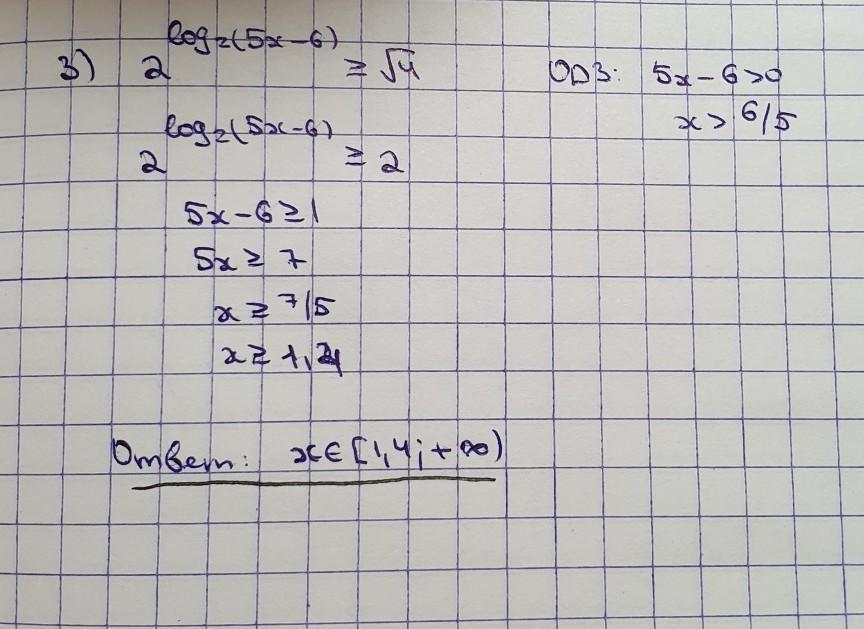 3) 2^log₂(5x-6) ≥ √4 ОДЗ: 5x-6>0
x > 6/5
2^log₂(5x-6) ≥ 2
5x-6≥1
5x ≥ 7
x ≥ 7/5
x ≥ 1,4
Ответ: x∈[1,4; +∞)